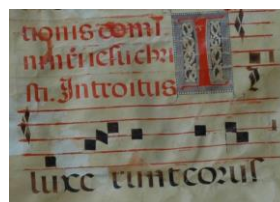 tionis domi
ni nri iesu chri
sti. Introitus
I
luxe runt coruſ